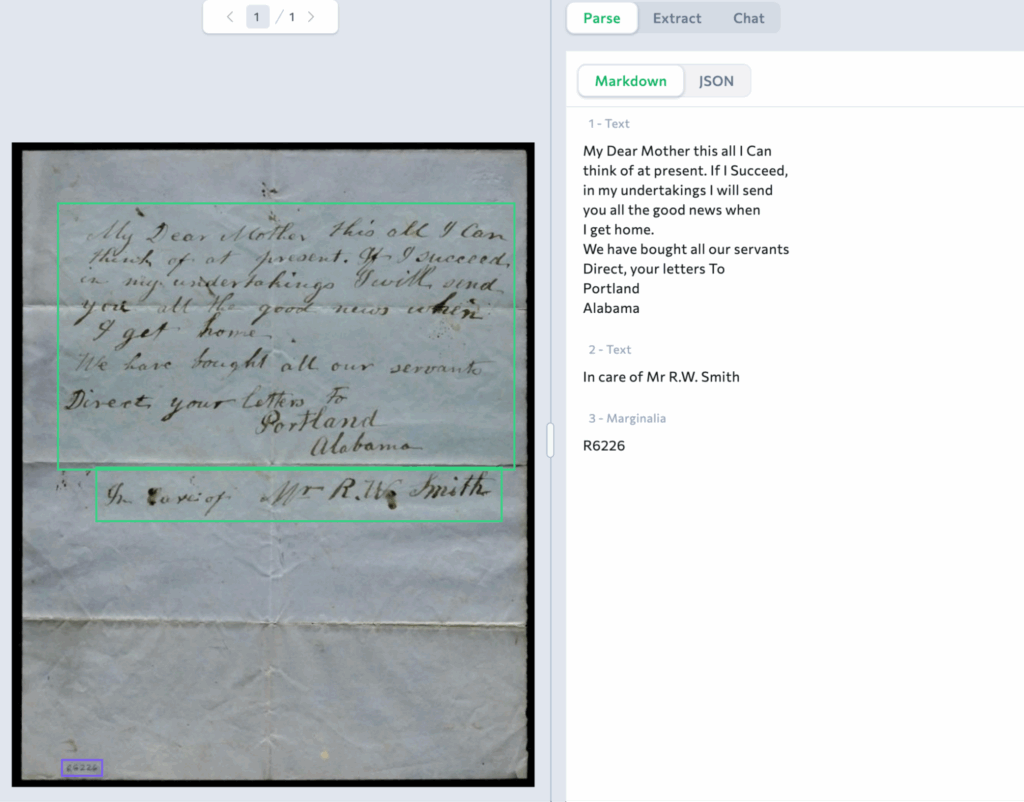 1 / 1
My Dear Mother this all I Can
think of at present. If I succeed,
in my undertakings I will send
you all the good news when
I get home.
We have bought all our servants
Direct, your letters To
Portland
Alabama
In care of Mr R.W. Smith
Parse
Extract
Chat
Markdown
JSON
1 - Text
My Dear Mother this all I Can
think of at present. If I Succeed,
in my undertakings I will send
you all the good news when
I get home.
We have bought all our servants
Direct, your letters To
Portland
Alabama
2 - Text
In care of Mr R.W. Smith
3 - Marginalia
R6226